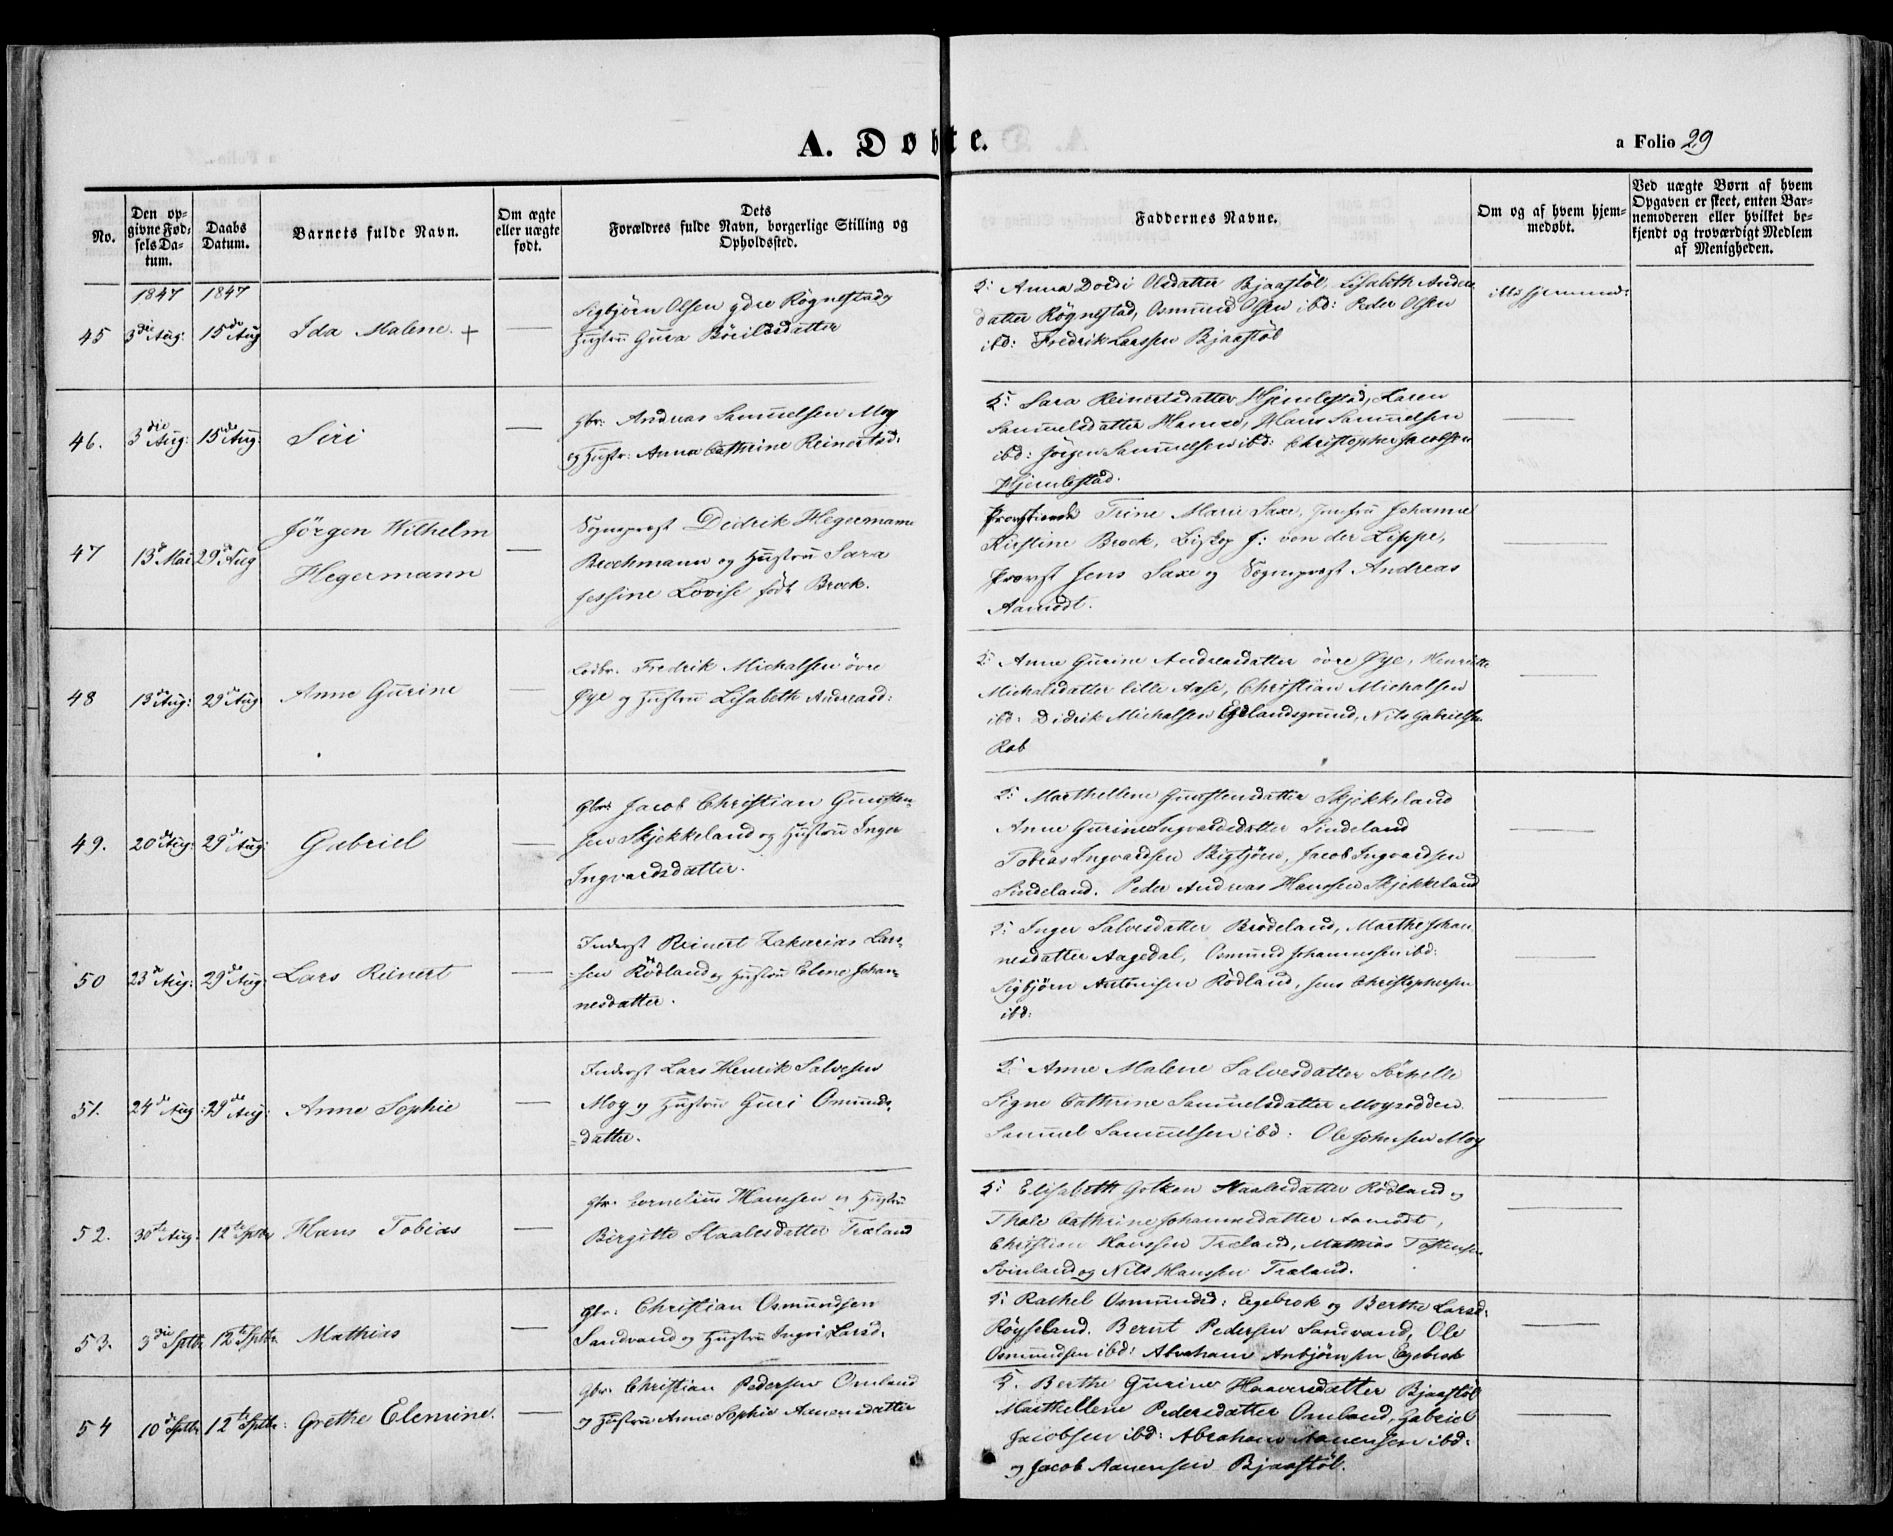 A. Døbte.
a Folio 29
No.
Den op-
givne Fød-
sels Da-
tum.
Daabs
Datum.
Barnets fulde Navn.
Om ægte
eller uægte
født.
Dets
Forældres fulde Navn, borgerlige Stilling og
Opholdssted.
Faddernes Navne.
Om og af hvem hjem-
medøbt.
Ved uægte Børn af hvem
Opgaven er skeet, enten Bar-
nemoderen eller hvilket be-
kjendt og troværdigt Medlem
af Menigheden.
1847 1847
45 3die Aug: 15de Aug Ida Malene + —
Sigbjörn Olsen ydre Rögnestad og
Hustru Gura Böeilsdatter
F: Anna Dordi Olsdatter Bjaastöl, Lisabeth Anders
datter Rögnestad, Osmund Olsen ibd: Peder Olsen
ibd: Fredrik Larssen Bjaastöl
46. 3die Aug: 15de Aug: Siri —
Gbr: Andreas Samuelsen Moy
og Hustr: Anna Cathrine Reinertsd:
F: Sara Reinertsdatter Hjemlestad, Karen
Samuelsdatter Hamre, Hans Samuelsen
ibd: Jörgen Samuelsen ibd: Christopher Jacobsen
Hjemlestad.
47 13de Mai 29de Aug Jörgen Wilhelm
Hegermann —
Sognepræst Didrik Hegermann
Brochmann og Hustru Sara
Jessine Lovise födt Brock.
Provstinde Trine Marie Saxe, Jomfru Johanne
Kirstine Brock, J: von der Lippe,
Provst Jens Saxe og Sognepræst Andreas
Aamodt.
48 13de Aug: 29de Aug: Anne Gurine —
Leilbr. Fredrik Michalsen övre
Øye og Hustru Lisabeth Andreasd:
F: Anne Gurine Andreasdatter övre Øye, Henriette
Michalsdatter lille Aase, Christian Michalsen
ibd: Didrik Michalsen Egelandsgrund, Nils Gabrielsen
Rob
49. 20de Aug: 29de Aug: Gabriel —
Gbr: Jacob Christian Gunsten-
sen Skjekkeland og Hustru Inger
Ingvardsdatter.
F: Marthellene Gunstensdatter Skjekkeland
Anne Gurine Ingvardsdatter Sindeland
Tobias Ingvardsen Bigtjönn, Jacob Ingvardsen
Sindeland. Peder Andreas Hanssen Skjekkeland
50 23de Aug: 29de Aug: Lars Reinert —
Inderst Reinert Zakarias Lars-
sen Rödland og Hustru Elene Johan-
nesdatter.
F: Inger Salvesdatter Brödeland, Marthe Johan
nesdatter Aagedal, Osmund Johannessen ibd:
Sigbjörn Antonisen Rödland, Jens Christophersen
ibd:
51. 24de Aug: 29de Aug: Anne Sophie —
Inderst Lars Henrik Salvesen
Moy og Hustru Guri Osmunds-
datter.
F: Anne Malene Salvesdatter Körkelle
Signe Cathrine Samuelsdatter Moysodden.
Samuel Samuelsen ibd: Ole Johnsen Moy
52. 30te Aug: 12te Sptbr Hans Tobias —
Gbr. Cornelius Hanssen og Hustru
Birgitte Staalesdatter Træland
F: Elisabeth Golken Staalesdatter Rödland og
Thale Cathrine Johannesdatter Aamodt,
Christian Hanssen Træland, Mathias Tostensen
Svinland og Nils Hanssen Træland.
53. 3die Sptbr. 12te Sptbr. Mathias —
Gbr: Christian Osmundsen
Sandvand og Hustru Ingri Larsd.
F: Rathel Osmundsd: Egebrok og Berthe Larsd:
Röyseland. Bernt Pedersen Sandvand, Ole
Osmundsen ibd: Abraham Anbjörnsen Egebrok
54 10de Sptbr 12te Sptbr: Grethe Elenine. —
Gbr: Christian Pedersen Omland
og Hustru Anne Sophie Aanensdatter
F. Berthe Gurine Haavorsdatter Bjaastöl
Marthellene Pedersdatter Omland, Gabriel
Jacobsen ibd: Abraham Aanensen ibd:
og Jacob Aanensen Bjaastöl.